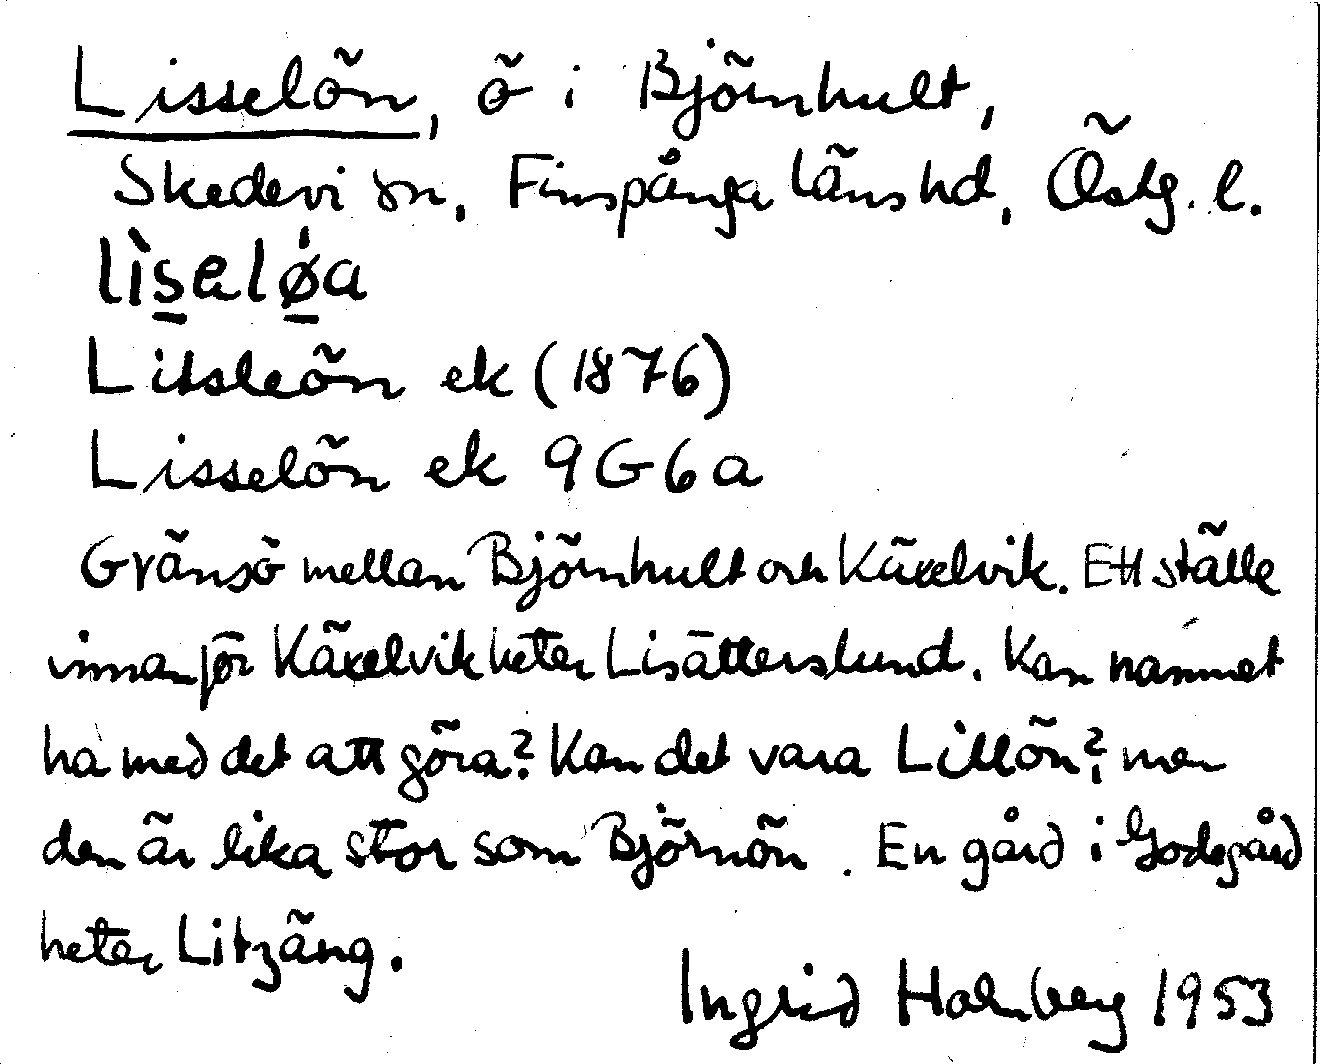 Lisselön, ö i Björnhult,
Skedevi sn, Finspånga läns hd, Östg. l.
lìsalø̀a
Litsleön ek (1876)
Lisselön ek 9G6a
Gränsö mellan Björnhult och Käxelvik. Ett ställe
innanför Käxelvik heter Lisätterslund. Kan namnet
ha med det att göra? Kan det vara Lillön?, men
den är lika stor som Björnön. En gård i Godegård
heter Litzäng.
Ingrid Holmberg 1953